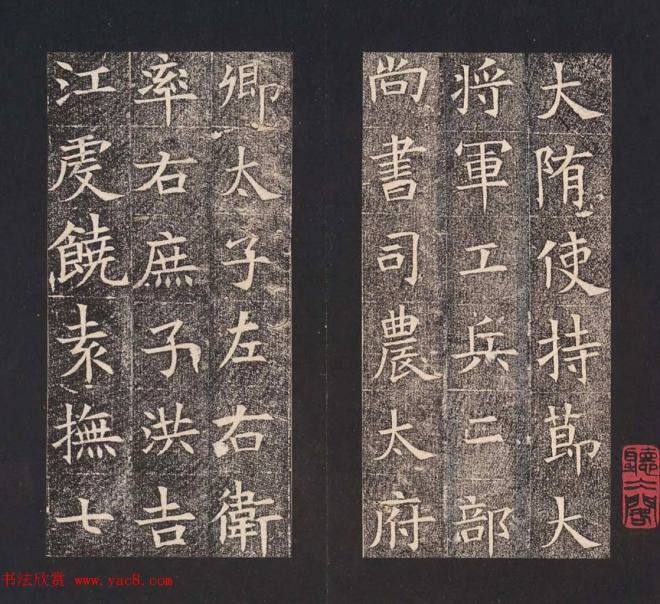 大隋使持節大
将軍工兵二部
尚書司農太府
卿太子左右衛
率右庶子洪吉
江虔饒袁撫七
聽冰閣
书法欣赏 www.yac8.com